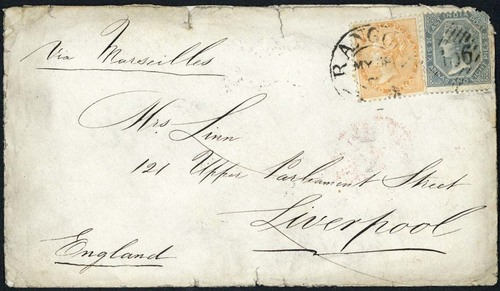 Via Marseilles
RANGO
INDIA
Mrs. Linn
121 Upper Parliament Street
Liverpool
England